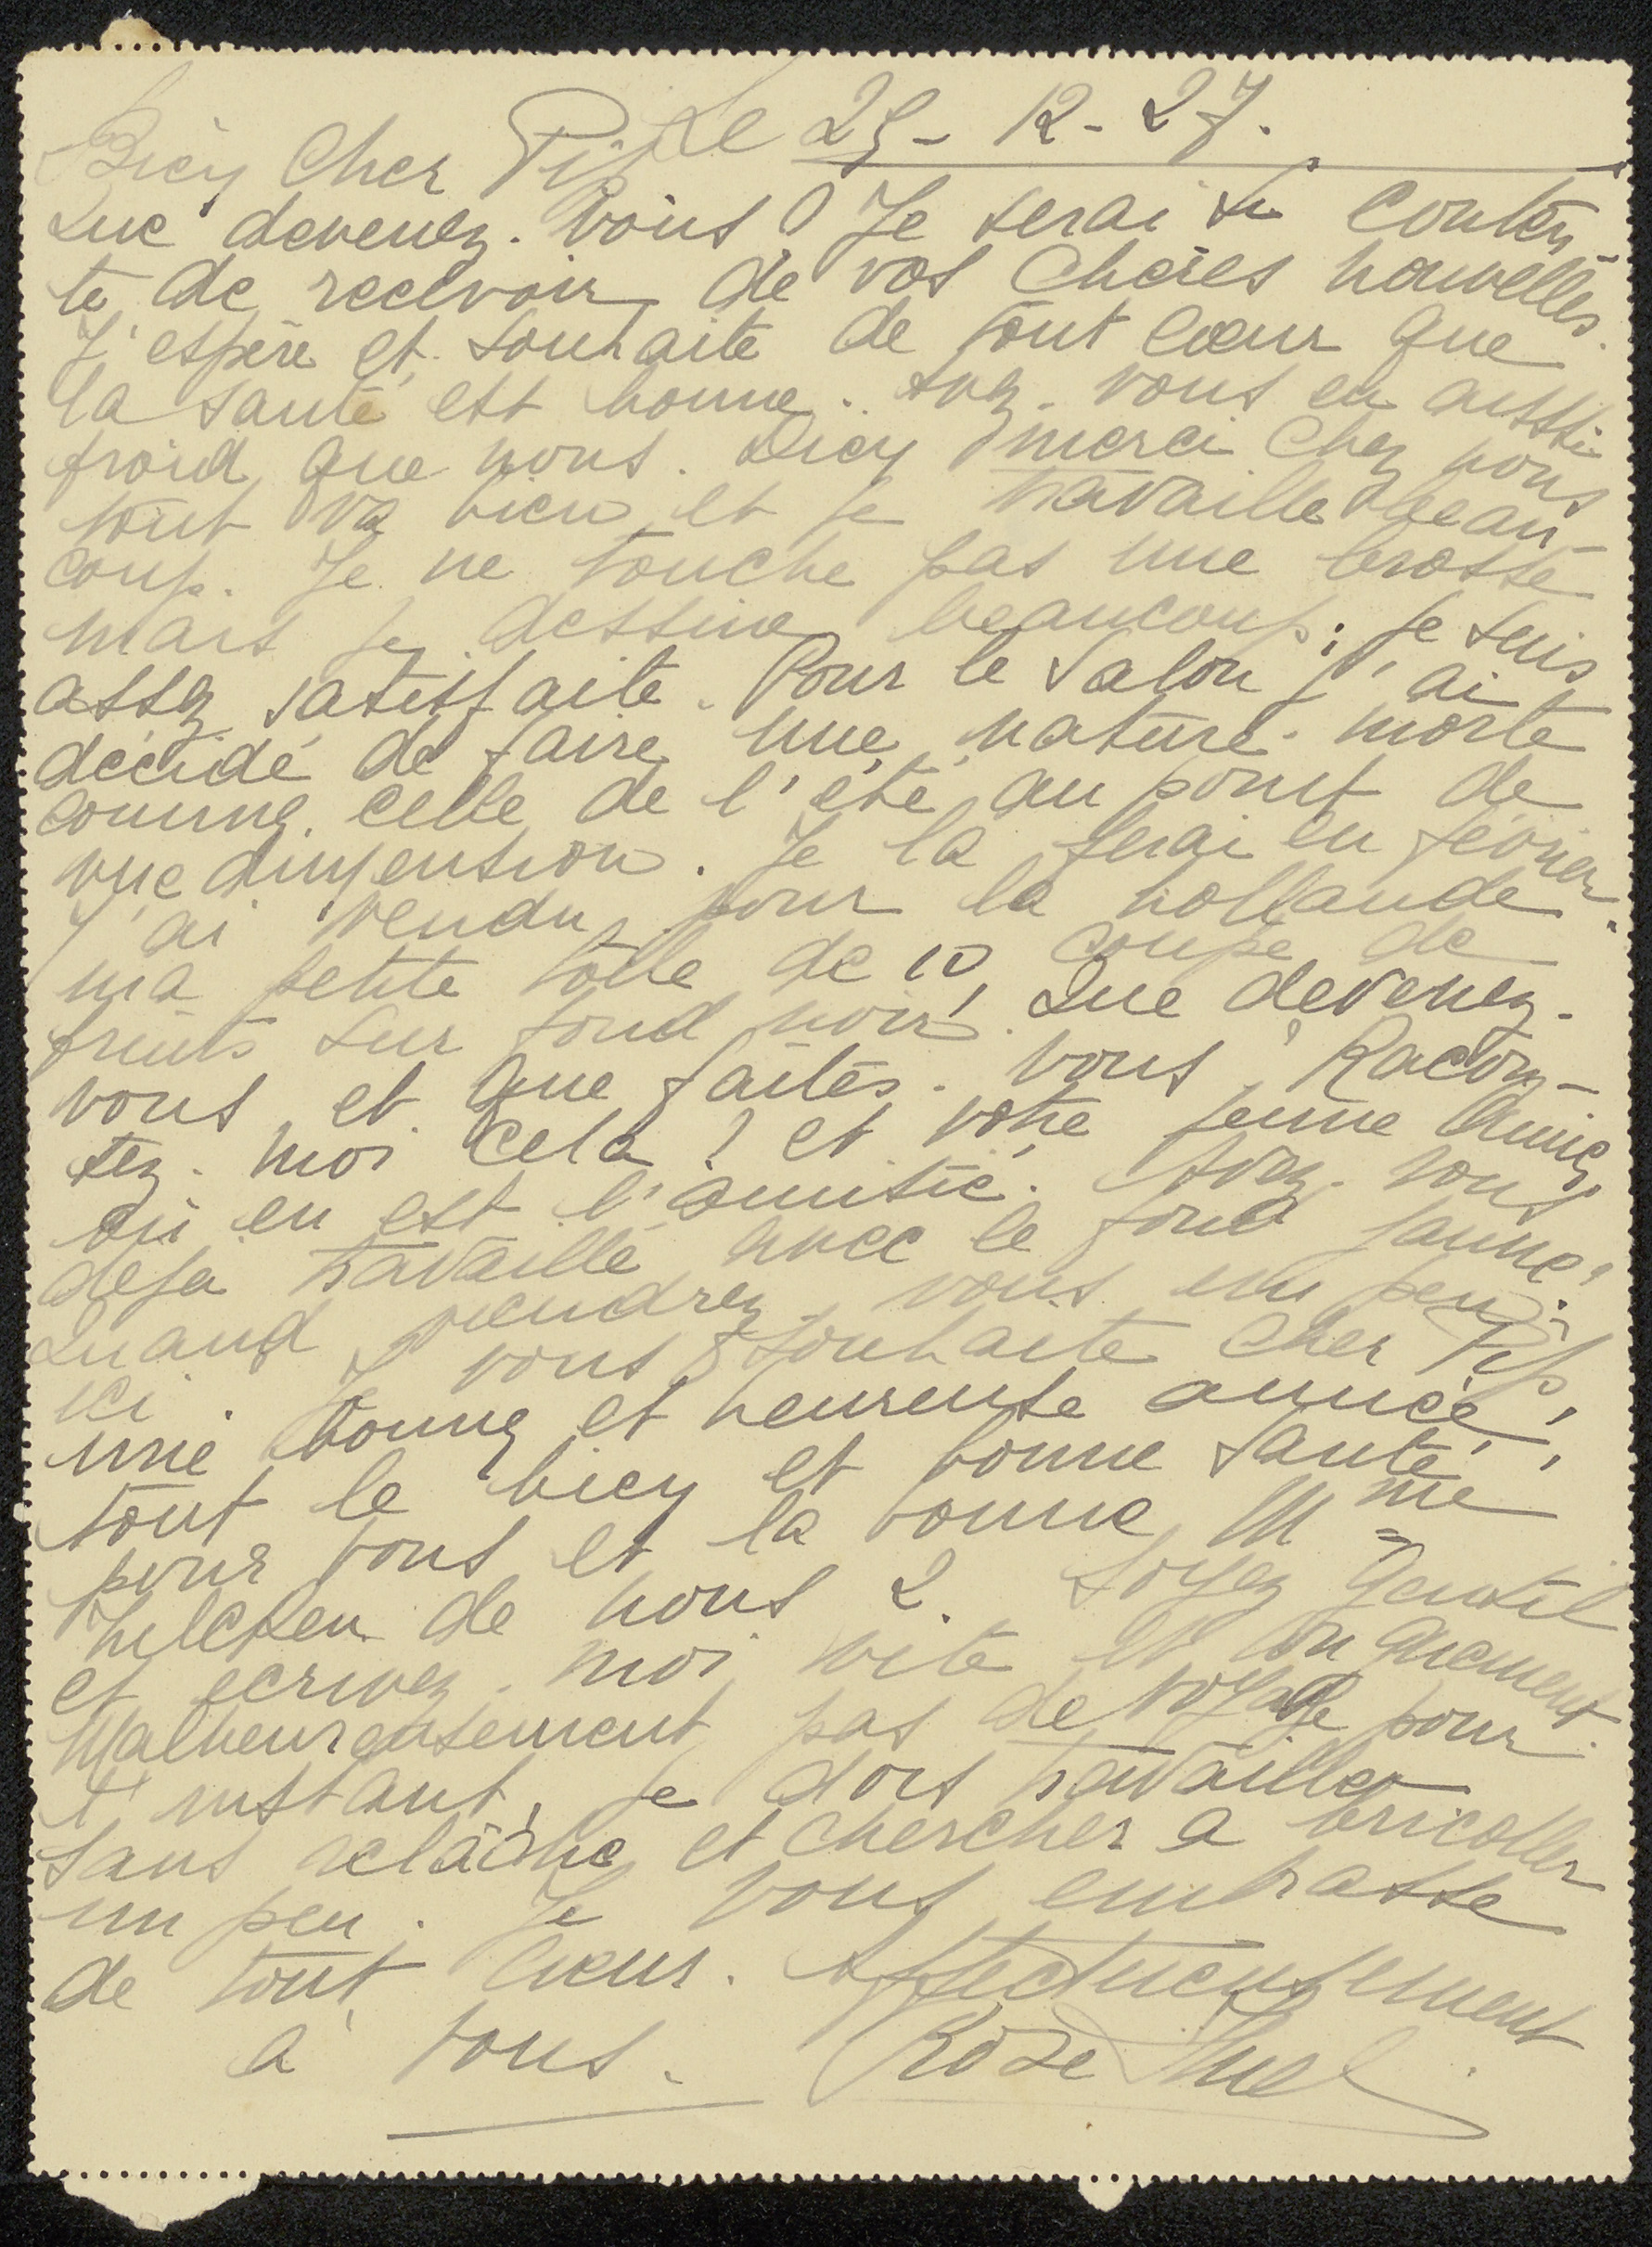 Le 25-12-27.
Bien Cher Pip
Que devenez-vous? Je serai si conten-
te de recevoir de vos chères nouvelles.
J'espère et souhaite de tout cœur que
la santé est bonne. Avez-vous eu aussi
froid que nous. Dieu merci chez nous
tout va bien et je travaille beau-
coup. Je ne touche pas une brosse
mais je dessine beaucoup; je suis
assez satisfaite. Pour le Salon j'ai
décidé de faire une nature-morte
comme celle de l'été au point de
vue dimension. Je la ferai en février.
J'ai vendu pour la hollande
ma petite toile de 10, coupe de
fruits sur fond noir. Que devenez-
vous et que faites-vous? Racon-
tez-moi cela! et votre jeune amie,
où en est l'amitié. Avez-vous
deja travaillé avec le fond jaune?
Quand viendrez-vous un peu
ici. Je vous souhaite cher Pip,
une bonne et heureuse année,
tout le bien et bonne santé,
pour vous et la bonne Mme
de nous 2. Soyez gentil
et ecrivez-moi vite et longuement.
Malheureusement pas de voyage pour
l'instant, je dois travailler
sans relâche et chercher a bricoller
un peu. Je vous embrasse
de tout cœur. Affectueusement
à vous. Rose